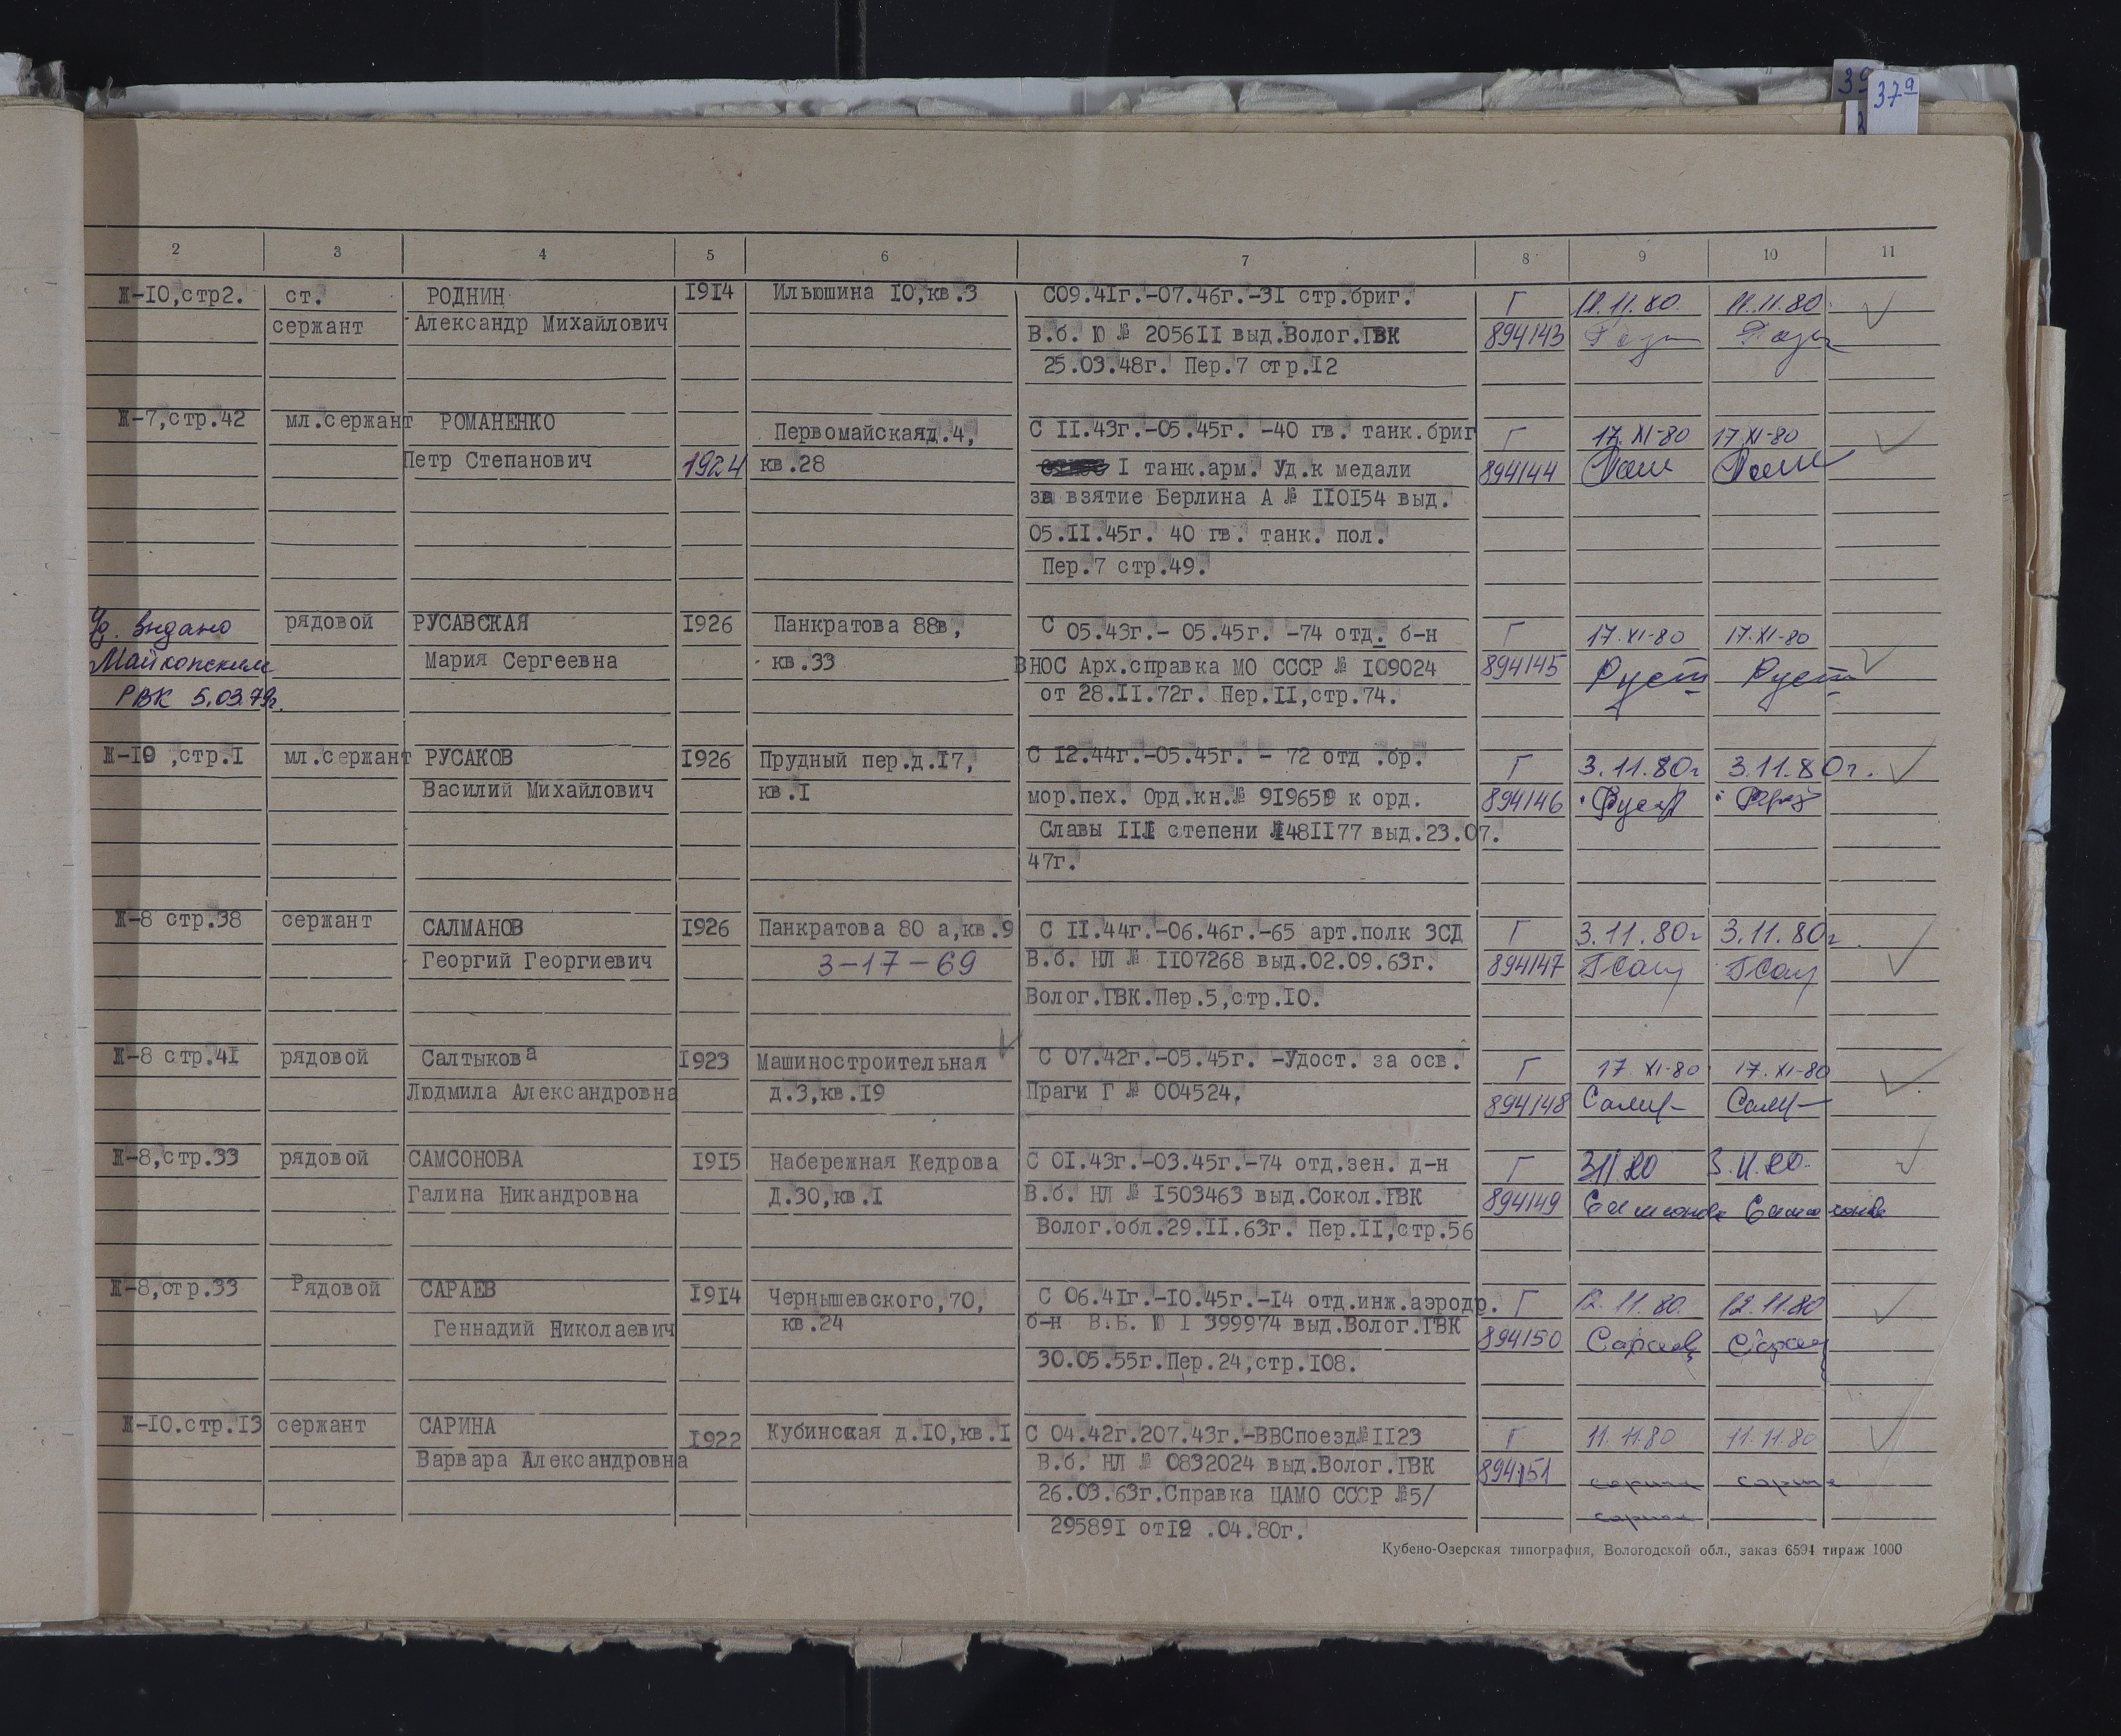 3а 37а
2 3 4 5 6 7 8 9 10 11
Ж-10,стр2. ст. РОДНИН 1914 Ильюшина 10,кв.3 С09.41г.-07.46г.-31 стр.бриг. Г 11.11.80. 11.11.80.
сержант Александр Михайлович В.б. Ю № 205611 выд.Волог.ГВК 894143
25.03.48г. Пер.7 стр.12
Ж-7,стр.42 мл.сержант РОМАНЕНКО Первомайскаяд.4, С 11.43г.-05.45г. -40 гв. танк.бриг Г 17.XI-80 17.XI-80
Петр Степанович 1924 кв.28 1 танк.арм. Уд.к медали 894144
за взятие Берлина А № 110154 выд.
05.11.45г. 40 гв. танк. пол.
Пер.7 стр.49.
Уд. выдано рядовой РУСАВСКАЯ 1926 Панкратова 88в, С 05.43г.- 05.45г. -74 отд. б-н Г 17.XI-80 17.XI-80
Майкопским Мария Сергеевна кв.33 ВНОС Арх.справка МО СССР № 109024 894145
РВК 5.03.79г. от 28.11.72г. Пер.11,стр.74.
Ж-10 ,стр.1 мл.сержант РУСАКОВ 1926 Прудный пер.д.17, С 12.44г.-05.45г. - 72 отд .бр. Г 3.11.80г 3.11.80г.
Василий Михайлович кв.1 мор.пех. Орд.кн.№ 919659 к орд. 894146
Славы III степени №481177 выд.23.07.
47г.
Ж-8 стр.38 сержант САЛМАНОВ 1926 Панкратова 80 а,кв.9 С 11.44г.-06.46г.-65 арт.полк ЗСД Г 3.11.80г 3.11.80г.
Георгий Георгиевич 3-17-69 В.б. НЛ № 1107268 выд.02.09.63г. 894147
Волог.ГВК.Пер.5,стр.10.
Ж-8 стр.41 рядовой Салтыкова 1923 Машиностроительная С 07.42г.-05.45г. -Удост. за осв. Г 17 XI-80 17.XI-80
Людмила Александровна д.3,кв.19 Праги Г № 004524. 894148
Ж-8,стр.33 рядовой САМСОНОВА 1915 Набережная Кедрова С 01.43г.-03.45г.-74 отд.зен. д-н Г 3.11.80 3.11.80.
Галина Никандровна Д.30,кв.1 В.б. НЛ № 1503463 выд.Сокол.ГВК 894149 Самсонова Самсонова
Волог.обл.29.11.63г. Пер.11,стр.56
Ж-8,стр.33 Рядовой САРАЕВ 1914 Чернышевского,70, С 06.41г.-10.45г.-14 отд.инж.аэродр. Г 12.11.80. 12.11.80
Геннадий Николаевич кв.24 б-н В.Б. Ю 1 399974 выд.Волог.ГВК 894150 Сараев
30.05.55г.Пер.24,стр.108.
Ж-10.стр.13 сержант САРИНА 1922 Кубинская д.10,кв.1 С 04.42г.207.43г.-ВВСпоезд№1123 Г 11.11.80 11.11.80
Варвара Александровна В.б. НЛ № 0832024 выд.Волог.ГВК 894151 сарина сарина
26.03.63г.Справка ЦАМО СССР №5/ сарина
295891 от12 .04.80г.
Кубено-Озерская типография, Вологодской обл., заказ 6594 тираж 1000